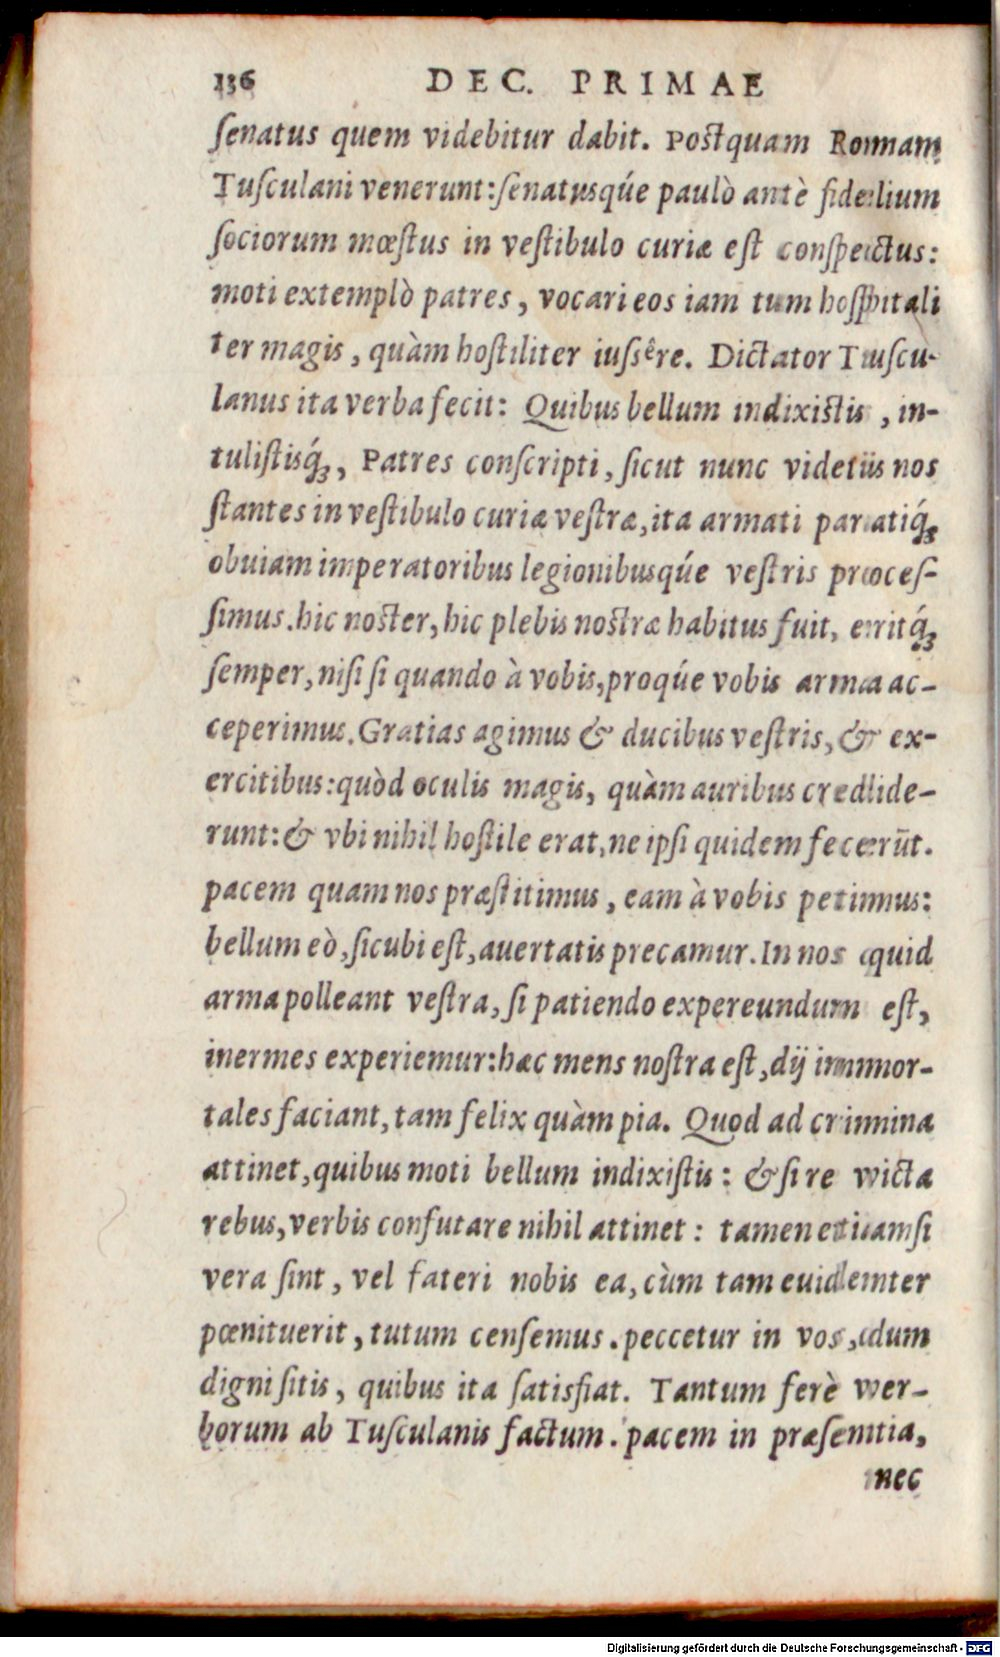 136 DEC. PRIMAE
ſenatus quem videbitur dabit. Poſtquam Romam
Tuſculani venerunt: ſenatusqúe paulò antè fidelium
ſociorum mœſtus in veſtibulo curiæ eſt conſpectus:
moti extemplò patres, vocari eos iam tum hoſpitali
ter magis, quàm hoſtiliter iuſsêre. Dictator Tuſcu-
lanus ita verba fecit: Quibus bellum indixiſtis, in-
tuliſtisq́ꝫ, Patres conſcripti, ſicut nunc videtis nos
ſtantes in veſtibulo curiæ veſtræ, ita armati paratiq́ꝫ
obuiam imperatoribus legionibusqúe veſtris proceſ-
ſimus. hic noſter, hic plebis noſtræ habitus fuit, eritq́ꝫ
ſemper, niſi ſi quando à vobis, proqúe vobis arma ac-
ceperimus. Gratias agimus & ducibus veſtris, & ex-
ercitibus: quòd oculis magis, quàm auribus credide-
runt: & vbi nihil hoſtile erat, ne ipſi quidem fecerūt.
pacem quam nos præſtitimus, eam à vobis petimus:
bellum eò, ſicubi eſt, auertatis precamur. In nos quid
arma polleant veſtra, ſi patiendo expereundum eſt,
inermes experiemur: hæc mens noſtra eſt, dij immor-
tales faciant, tam felix quàm pia. Quod ad crimina
attinet, quibus moti bellum indixiſtis: & ſi re victa
rebus, verbis confutare nihil attinet: tamen etiamſi
vera ſint, vel fateri nobis ea, cùm tam euidenter
pœnituerit, tutum cenſemus. peccetur in vos, dum
digni ſitis, quibus ita ſatisfiat. Tantum ferè ver-
borum ab Tuſculanis factum. pacem in præſentia,
nec
Digitalisierung gefördert durch die Deutsche Forschungsgemeinschaft - DFG